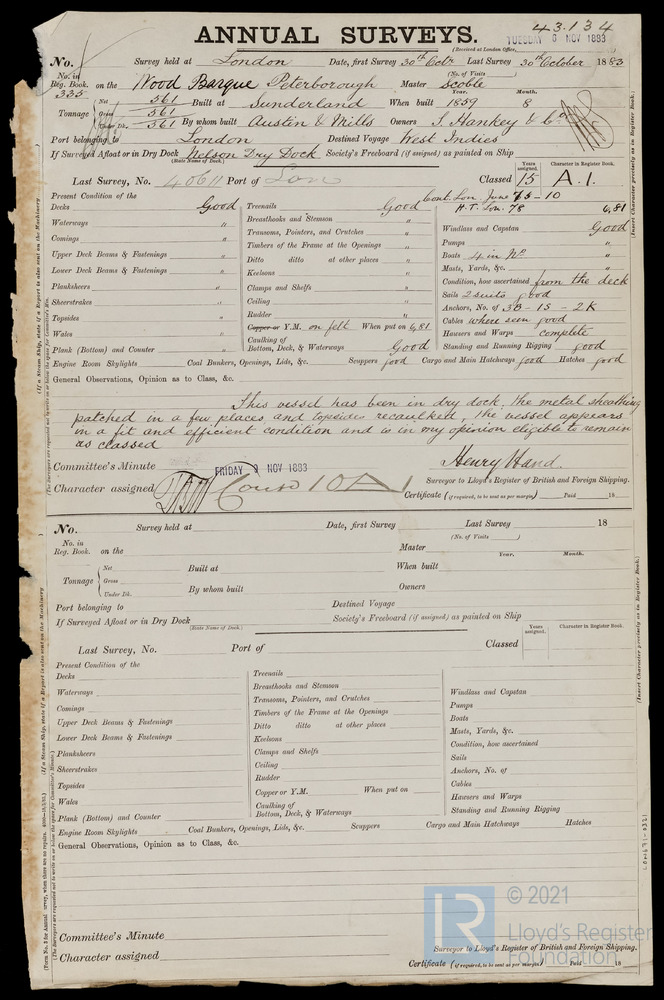 43.134
ANNUAL SURVEYS.
(Received at London Office, TUESDAY 6 NOV 1883
No. Survey held at London Date, first Survey 30th Octr Last Survey 30th October 1883
(No. of Visits )
No. in Reg. Book. 335 on the Wood Barque Peterborough Master Scoble
Year. Month.
Tonnage Net 561 Gross 561 Under Dk. 561 Built at Sunderland When built 1859 8
By whom built Austin & Mills Owners T. Hankey & Co
Port belonging to London Destined Voyage West Indies
If Surveyed Afloat or in Dry Dock Nelson Dry Dock Society's Freeboard (if assigned) as painted on Ship
(State Name of Dock.)
Years assigned. Character in Register Book.
Last Survey, No. 40611 Port of Lon Classed 15 A.1.
Cont. Lon. June 75-10
H.T. Lon. 78 6,81
Present Condition of the
Decks Good
Waterways "
Comings "
Upper Deck Beams & Fastenings "
Lower Deck Beams & Fastenings "
Planksheers "
Sheerstrakes "
Topsides "
Wales "
Plank (Bottom) and Counter "
Treenails Good
Breasthooks and Stemson "
Transoms, Pointers, and Crutches "
Timbers of the Frame at the Openings "
Ditto ditto at other places "
Keelsons "
Clamps and Shelfs "
Ceiling "
Rudder "
Copper or Y.M. on felt When put on 6,81
Caulking of Bottom, Deck, & Waterways Good
Windlass and Capstan Good
Pumps "
Boats 4 in No. "
Masts, Yards, &c. "
Condition, how ascertained from the deck
Sails 2 suits good
Anchors, No. of 3B - 1S - 2K
Cables where seen good
Hawsers and Warps complete
Standing and Running Rigging good
Engine Room Skylights Coal Bunkers, Openings, Lids, &c. Scuppers good Cargo and Main Hatchways good Hatches good
General Observations, Opinion as to Class, &c.
This vessel has been in dry dock, the metal sheathing
patched in a few places and topsides recaulked, the vessel appears
in a fit and efficient condition and is in my opinion eligible to remain
as classed
Henry Hand.
Committee's Minute FRIDAY 9 NOV 1883
Surveyor to Lloyd's Register of British and Foreign Shipping.
Character assigned Contd 10 A 1
Certificate (if required, to be sent as per margin) Paid 18
No. Survey held at Date, first Survey Last Survey 18
(No. of Visits )
No. in Reg. Book. on the Master
Year. Month.
Tonnage Net Gross Under Dk. Built at When built
By whom built Owners
Port belonging to Destined Voyage
If Surveyed Afloat or in Dry Dock Society's Freeboard (if assigned) as painted on Ship
(State Name of Dock.)
Years assigned. Character in Register Book.
Last Survey, No. Port of Classed
Present Condition of the
Decks
Waterways
Comings
Upper Deck Beams & Fastenings
Lower Deck Beams & Fastenings
Planksheers
Sheerstrakes
Topsides
Wales
Plank (Bottom) and Counter
Treenails
Breasthooks and Stemson
Transoms, Pointers, and Crutches
Timbers of the Frame at the Openings
Ditto ditto at other places
Keelsons
Clamps and Shelfs
Ceiling
Rudder
Copper or Y.M. When put on
Caulking of Bottom, Deck, & Waterways
Windlass and Capstan
Pumps
Boats
Masts, Yards, &c.
Condition, how ascertained
Sails
Anchors, No. of
Cables
Hawsers and Warps
Standing and Running Rigging
Engine Room Skylights Coal Bunkers, Openings, Lids, &c. Scuppers Cargo and Main Hatchways Hatches
General Observations, Opinion as to Class, &c.
Committee's Minute
Surveyor to Lloyd's Register of British and Foreign Shipping.
Character assigned
Certificate (if required, to be sent as per margin) Paid 18
(Insert Character precisely as in Register Book.)
(Insert Character precisely as in Register Book.)
(If a Steam Ship, state if a Report is also sent on the Machinery
(If a Steam Ship, state if a Report is also sent on the Machinery
LR © 2021
Lloyd's Register
Foundation